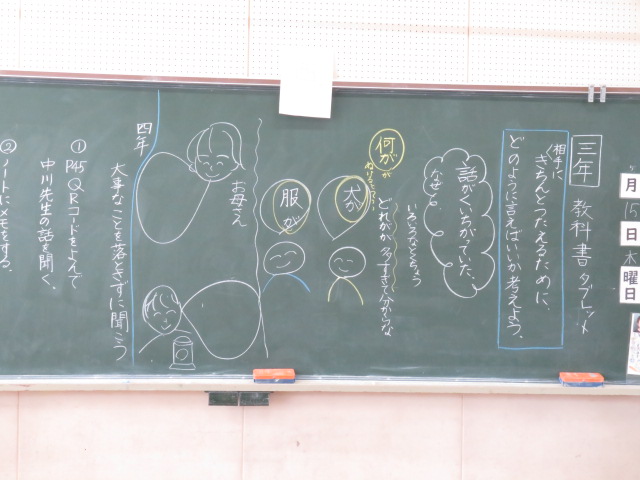 月
15
日
木
曜
日
三年
教科書 タブレット
相手に
きちんとつたえるために、
どのように言えばいいか考えよう。
話がくいちがっていた。
なぜ?
いろいろなとくちょう
何がが
ぬけるとこまる
どれがか多すぎて分からな
犬が
服が
お母さん
四年
大事なことを落とさずに聞こう
① P45 QRコードをよんで
中川先生の話を聞く。
② ノートにメモをする。